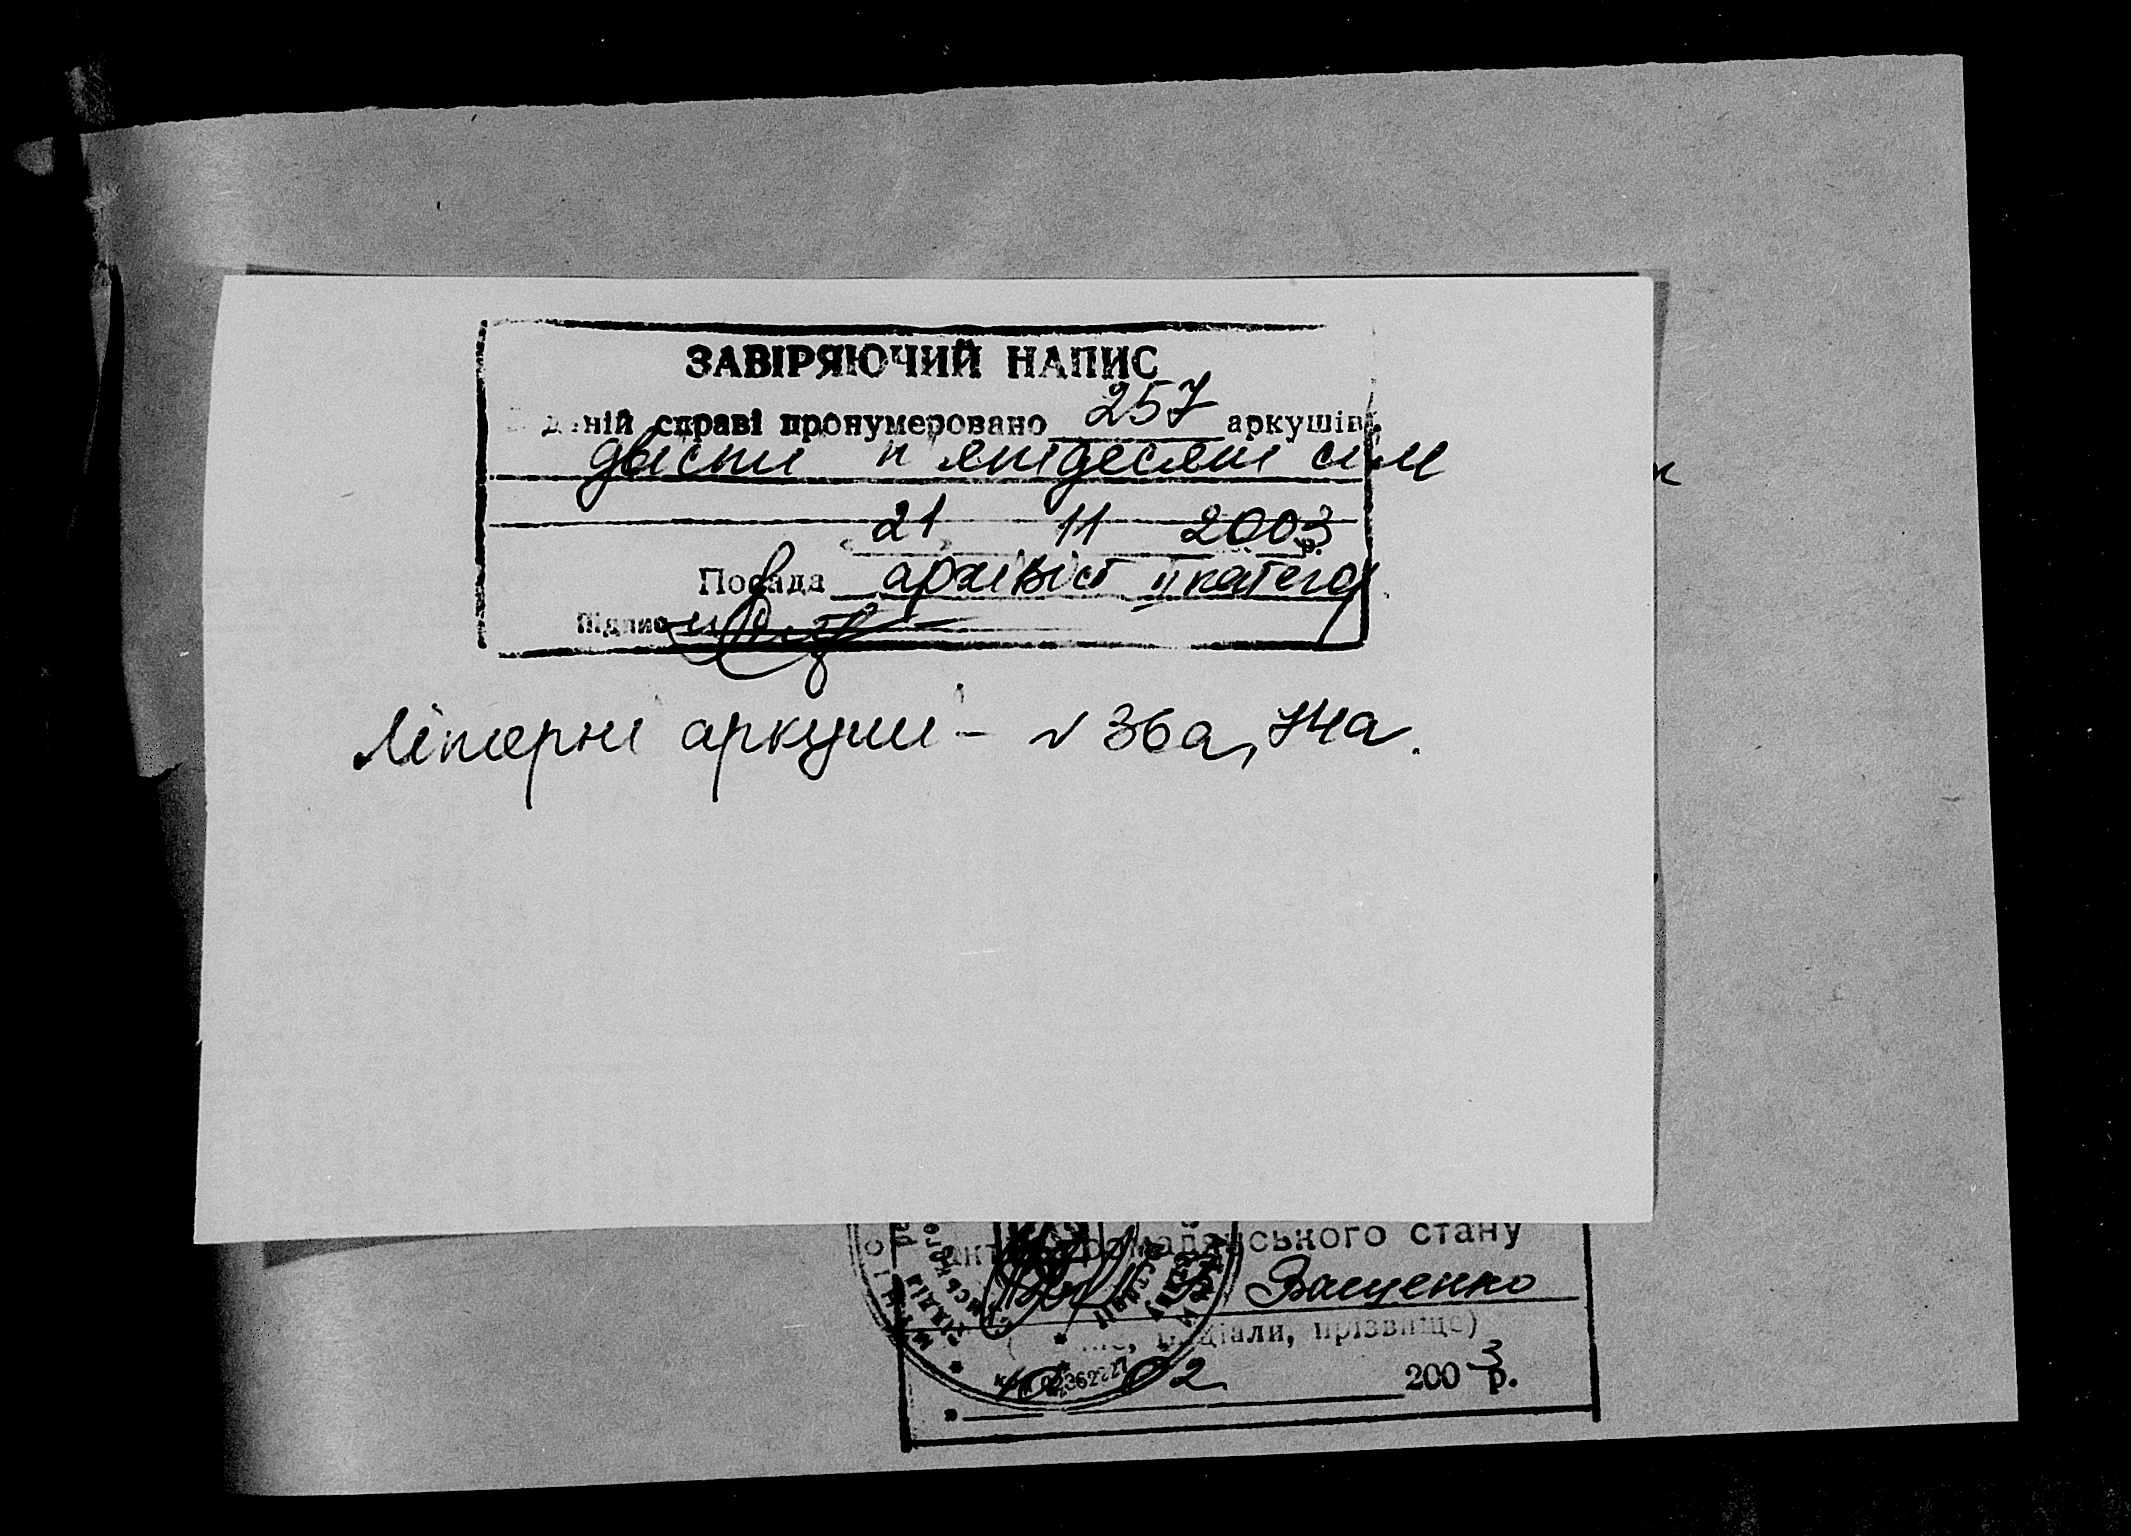 ЗАВІРЯЮЧИЙ НАПИС
даній справі пронумеровано 257 аркушів
двісти п'ятдесят сім
21 11 2003 р.
Посада архівіст II катего
Підпис
Літерні аркуші - № 36а, 74а.
громадянського стану
Ващенко
ініціали, прізвище)
02 2003 р.